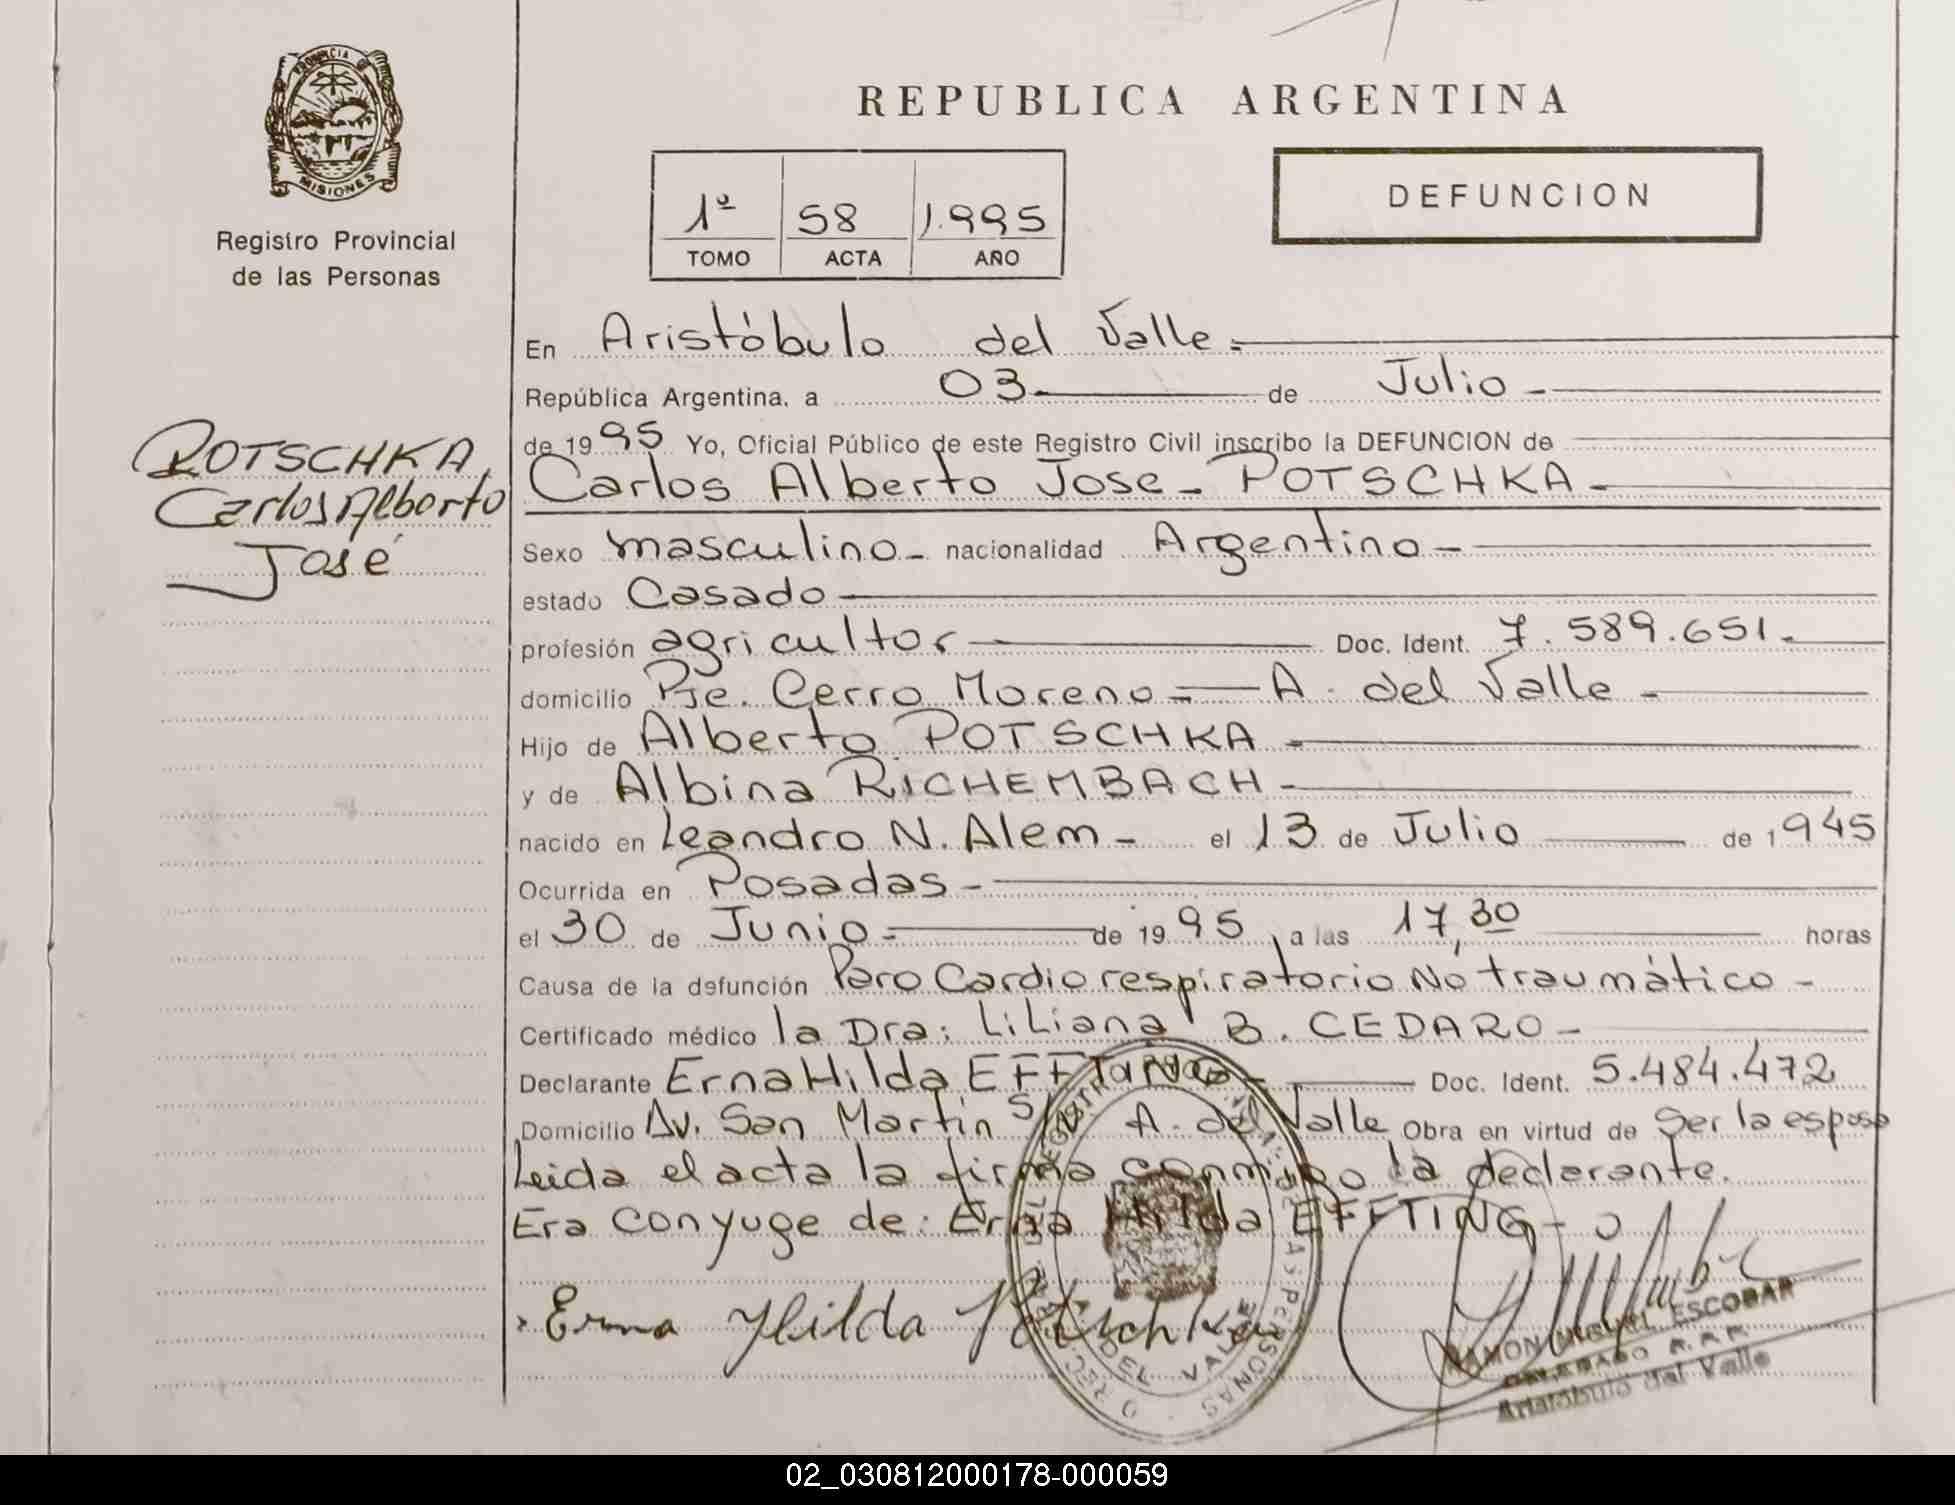 PROVINCIA DE
MISIONES
Registro Provincial
de las Personas
POTSCHKA,
Carlos Alberto
José
REPUBLICA ARGENTINA
1º 58 1.995
TOMO ACTA AÑO
DEFUNCION
En Aristóbulo del Valle.=
República Argentina, a 03 de Julio -
de 1995 Yo, Oficial Público de este Registro Civil inscribo la DEFUNCION de
Carlos Alberto Jose - POTSCHKA -
Sexo masculino - nacionalidad Argentino -
estado Casado
profesión agricultor Doc. Ident. 7.589.651.-
domicilio Pje. Cerro Moreno = A. del Valle -
Hijo de Alberto POTSCHKA -
y de Albina RICHEMBACH -
nacido en Leandro N. Alem - el 13 de Julio de 1945
Ocurrida en Posadas -
el 30 de Junio = de 1995, a las 17,30 horas
Causa de la defunción Paro Cardiorespiratorio No traumático -
Certificado médico la Dra: Liliana B. CEDARO -
Declarante Erna Hilda EFFTING - Doc. Ident. 5.484.472
Domicilio Av. San Martín S/N A. del Valle Obra en virtud de Ser la esposa
Leida el acta la firma conmigo la declarante.
Era conyuge de: Erna Hilda EFFTING -
Erna Hilda Potschka
DEL VALLE
RAMON MIGUEL ESCOBAR
DELEGADO R.P.P.
Aristóbulo del Valle
02_030812000178-000059